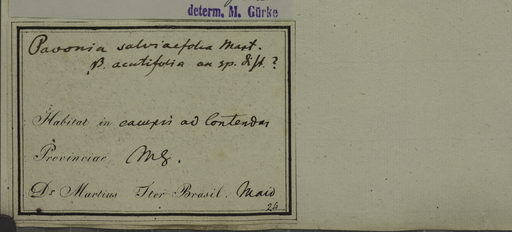 determ. M. Gürke
Pavonia salviaefolia Mart.
β. acutifolia an sp. dist.?
Habitat in campis ad Contendas
Provinciae MG.
Dr Martius Iter Brasil. Maio
24